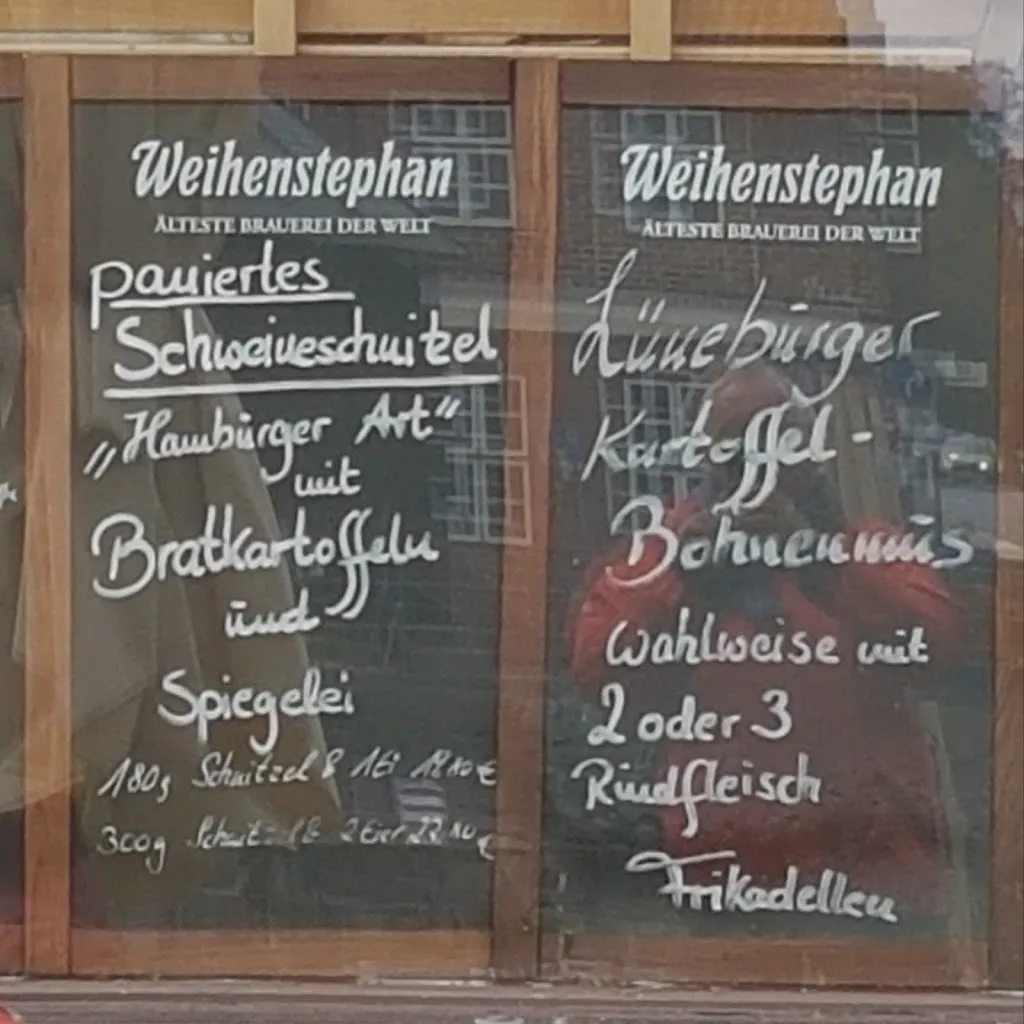 Weihenstephan
ÄLTESTE BRAUEREI DER WELT
paniertes
Schweineschnitzel
„Hamburger Art“
mit
Bratkartoffeln
und
Spiegelei
180g Schnitzel & 1 Ei
300g Schnitzel & 2 Eier
Weihenstephan
ÄLTESTE BRAUEREI DER WELT
Lüneburger
Kartoffel-
Bohnenmus
wahlweise mit
2 oder 3
Rindfleisch
Frikadellen